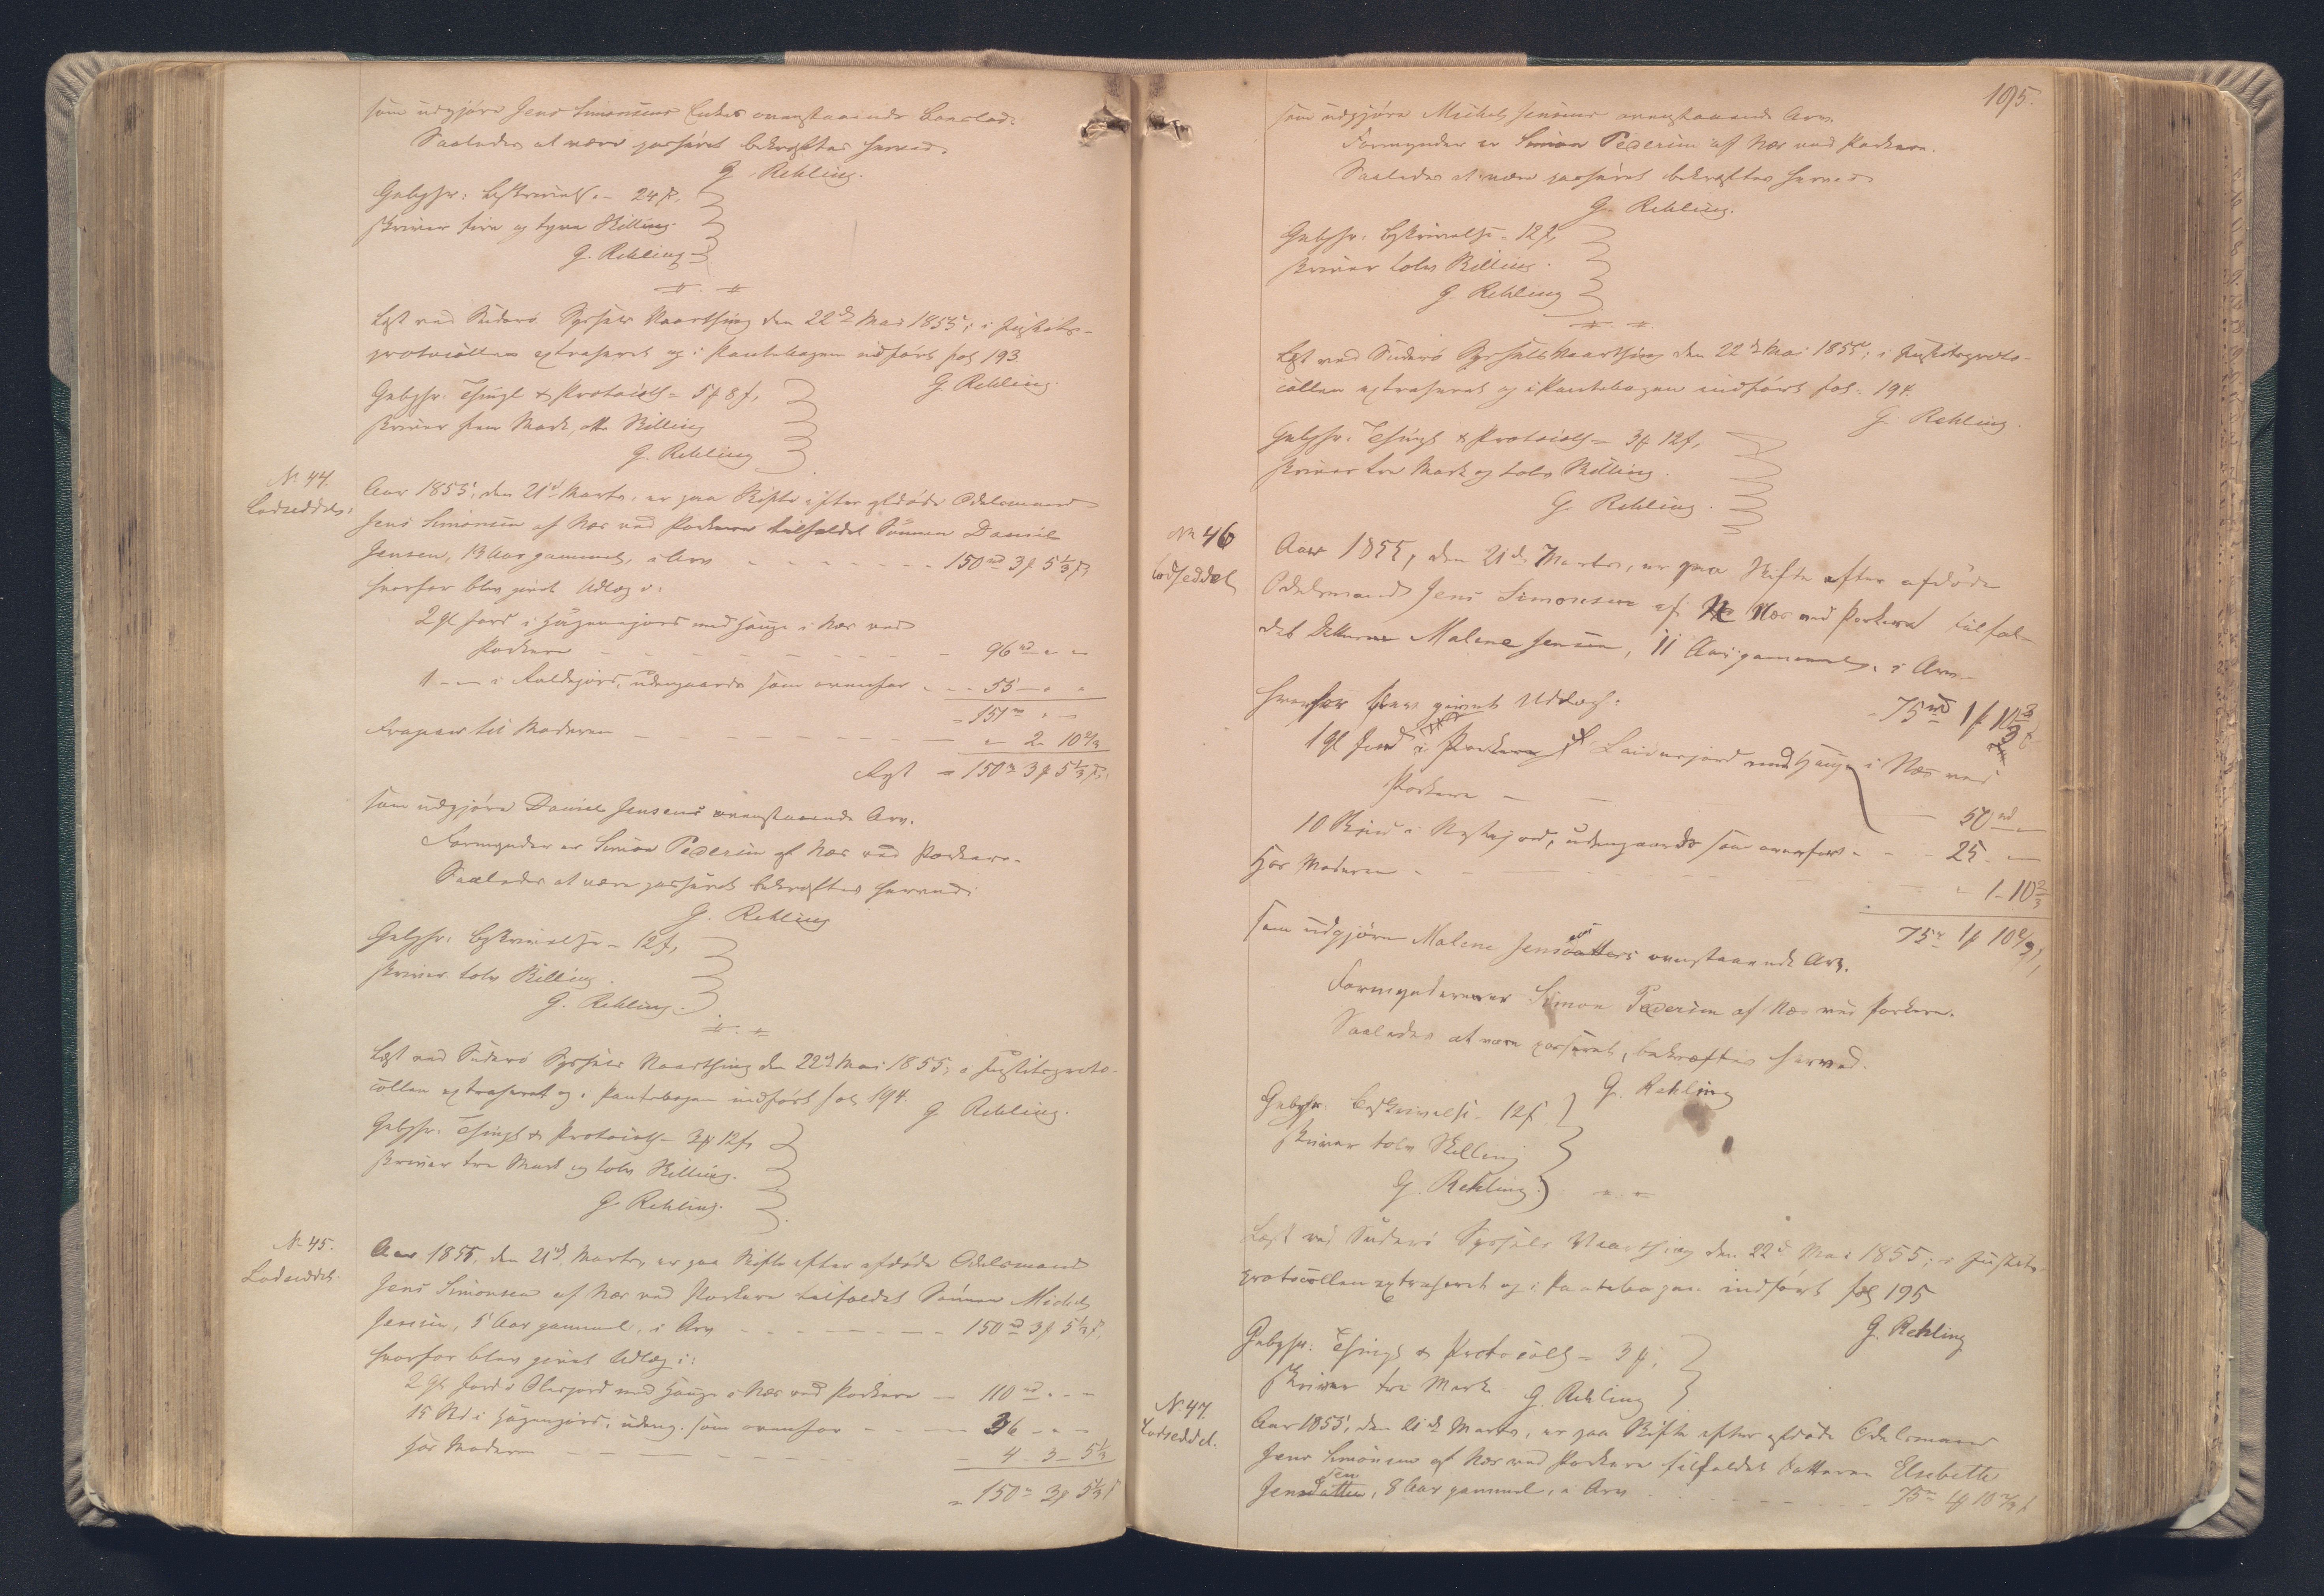 som udgjöre Jens Simonsens Enkes ovenstaaende Boeslod.
Saaledes at være passeret bekræftes herved.
G. Rehling.
Gebyhr: Beskrivels. - 24 ß,
skriver fire og tyve Skilling.
G. Rehling
Læst ved Suderö Syssels Vaarthing den 22de Mai 1855; i Justits-
protocollen extraheret og i Pantebogen indfört fol 193.
G. Rehling.
Gebyhr. Thingl & Protocoll - 5 ℳ 8 ß,
skriver fem Mark, otte Skilling
G. Rehling
№ 44.
Lodseddel.
Aar 1855, den 21de Marts, er paa Skifte efter afdöde Odelsmand
Jens Simonsen af Næs ved Porkere tilfaldet Sönnen Daniel
Jensen, 13 Aar gammel, i Arv - - - - - - - 150 rd 3 ℳ 5 1/3 ß
hvorfor blev givet Udlæg i:
2 Gl Jord i Hügenejord med Hauge i Næs ved
Porkere - - - - - - - - - 96 rd " "
1 - - i , udengaards som ovenfor - - - 55 - " "
= 151 rd " -
Fragaaer til Moderen - - - - - - - - - " 2 - 10 2/3
Igl = 150 rd 3 ℳ 5 1/3 ß.
som udgjöre Daniel Jensens ovenstaaende Arv.
Formynder er Simon Pedersen af Næs ved Porkere.
Saaledes at være passeret bekræftes herved:
G. Rehling
Gebyhr: Beskrivelse - 12 ß,
skriver tolv Skilling.
G. Rehling.
Læst ved Suderö Syssels Vaarthing den 22de Mai 1855; i Justitsproto-
collen extraheret og i Pantebogen indfört fol 194.
G. Rehling.
Gebyhr: Thingl & Protocoll - 3 ℳ 12 ß,
skriver tre Mark og tolv Skilling.
G. Rehling.
№ 45.
Lodseddel.
Aar 1855, den 21de Marts, er paa Skifte efter afdöde Odelsmand
Jens Simonsen af Næs ved Porkere tilfaldet Sönnen Michel
Jensen, 5 Aar gammel, i Arv - - - - - - - 150 rd 3 ℳ 5 1/3 ß,
hvorfor blev givet Udlæg i:
2 Gl Jord i Olerjord med Hauge i Næs ved Porkere - 110 rd " -
15 Skd i Hügenjord, udeng. som ovenfor - - - 36 - " -
hos Moderen - - - - - - - 4 - 3 - 5 1/3
= 150 rd 3 ℳ 5 1/3 ß
195.
som udgjöre Michel Jensens ovenstaaende Arv.
Formynder er Simon Pedersen af Næs ved Porkere.
Saaledes at være passeret bekræftes herved
G. Rehling.
Gebyhr: Beskrivelse - 12 ß,
skriver tolv Skilling.
G. Rehling
Læst ved Suderö Syssels Vaarthing den 22de Mai 1855; i Justitsproto-
collen extraheret og i Pantebogen indfört fol. 194.
G. Rehling.
Gebyhr. Thingl & Protocoll - 3 ℳ 12 ß,
skriver tre Mark og tolv Skilling.
G. Rehling.
№ 46
Lodseddel
Aar 1855, den 21de Marts, er paa Skifte efter afdöde
Odelsmand Jens Simonsen af Næs ved Porkere tilfal-
det Datteren Malene Jensen, 11 Aar gammel, i Arv -
- 75 rd 1 ℳ 10 2/3 ß
hvorfor blev givet Udlæg:
1 Gl Jord i Laidusjord med Hauge i Næs ved
Porkere - - - 50 rd -
10 Skind i , udengaards som ovenfor - - - 25 - -
Hos Moderen - - - - - - - 1 - 10 2/3
75 rd 1 ℳ 10 2/3 ß,
som udgjöre Malene Jensdatters ovenstaaende Arv.
Formynderen er Simon Pedersen af Næs ved Porkere.
Saaledes at være passeret, bekræftes herved.
G. Rehling
Gebyhr. Beskrivelse - 12 ß.
skriver tolv Skilling
G. Rehling.
Læst ved Suderö Syssels Vaarthing den 22de Mai 1855; i Justits-
protocollen extraheret og i Pantebogen indfört fol 195
G. Rehling
Gebyhr: Thingl & Protocoll - 3 ℳ,
skriver tre Mark
G. Rehling
№ 47.
Lodseddel.
Aar 1855, den 21de Marts, er paa Skifte efter afdöde Odelsmand
Jens Simonsen af Næs ved Porkere tilfaldet Datteren Elsebeth
Jensen, 8 Aar gammel, i Arv - - - - - - 75 rd 1 ℳ 10 2/3 ß